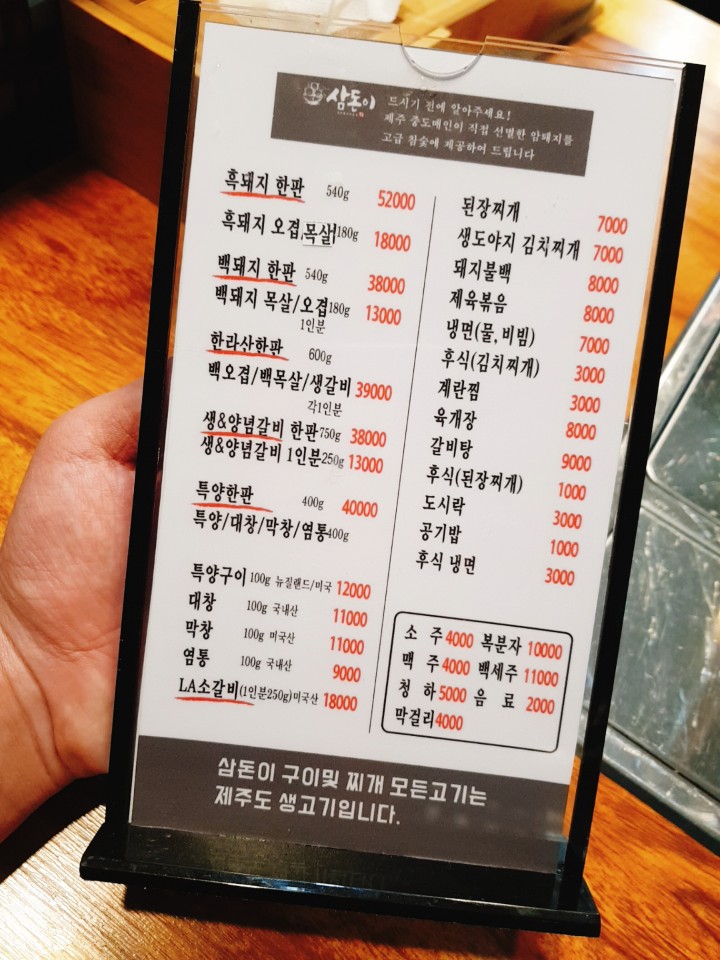 삼돈이
드시기 전에 알아주세요!
제주 중도매인이 직접 선별한 암퇘지를
고급 참숯에 제공하여 드립니다
흑돼지 한판 540g 52000
흑돼지 오겹,목살 180g 18000
백돼지 한판 540g 38000
백돼지 목살/오겹 180g 13000
1인분
한라산한판 600g
백오겹/백목살/생갈비 39000
각1인분
생&양념갈비 한판 750g 38000
생&양념갈비 1인분 250g 13000
특양한판 400g 40000
특양/대창/막창/염통 400g
특양구이 100g 뉴질랜드/미국 12000
대창 100g 국내산 11000
막창 100g 미국산 11000
염통 100g 국내산 9000
LA소갈비(1인분250g)미국산 18000
된장찌개 7000
생도야지 김치찌개 7000
돼지불백 8000
제육볶음 8000
냉면(물,비빔) 7000
후식(김치찌개) 3000
계란찜 3000
육개장 8000
갈비탕 9000
후식(된장찌개) 1000
도시락 3000
공기밥 1000
후식 냉면 3000
소 주 4000 복분자 10000
맥 주 4000 백세주 11000
청 하 5000 음 료 2000
막걸리 4000
삼돈이 구이및 찌개 모든고기는
제주도 생고기입니다.